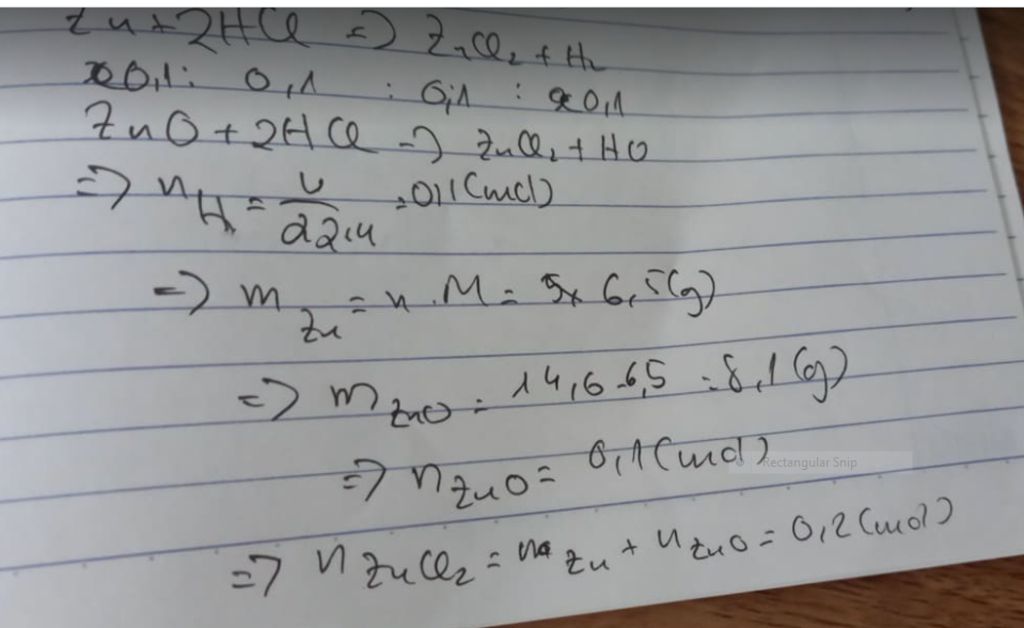 Zn + 2HCl => ZnCl2 + H2
0,1 : 0,1 : 0,1 : 0,1
ZnO + 2HCl => ZnCl2 + HO
=> nH = V/22,4 = 0,1 (mol)
=> mZn = n . M = 6,5 (g)
=> mZnO = 14,6 - 6,5 = 8,1 (g)
=> nZnO = 0,1 (mol)
Rectangular Snip
=> nZnCl2 = nZn + nZnO = 0,2 (mol)